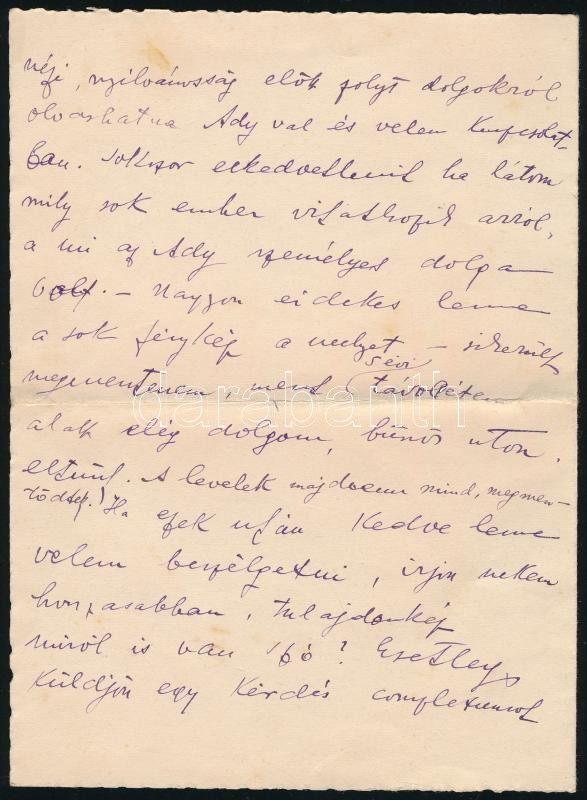 régi, nyilvánosság előtt folyt dolgokról
olvashatna Adyval és velem kapcsolat-
ban. Sokszor elkedvetlenít ha látom
mily sok ember vitatkozik arról,
a mi az Ady személyes dolga
volt. – Nagyon érdekes lenne
a sok fénykép a melyet – sikerült
megmentenem, mert 5 évi távollétem
alatt elég dolgom, bűnös uton
eltünt. A levelek majdnem mind, megmen-
tődtek! Ha ezek után kedve lenne
velem beszélgetni, irjon nekem
hosszasabban, tulajdonkép
miről is van szó? Esetleg
küldjön egy kérdés complexumot
darabanth